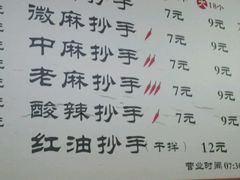 大 18个
微麻抄手 7元 9元
中麻抄手 7元 9元
老麻抄手 7元 9元
酸辣抄手 7元 9元
红油抄手(干拌) 12元
营业时间 07:30